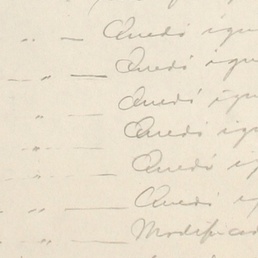 " — Quedó igu
— " — Quedó igu
Quedó igu
" Quedó igu
— " — Quedó ig
— " — Quedó ig
" — Modificad